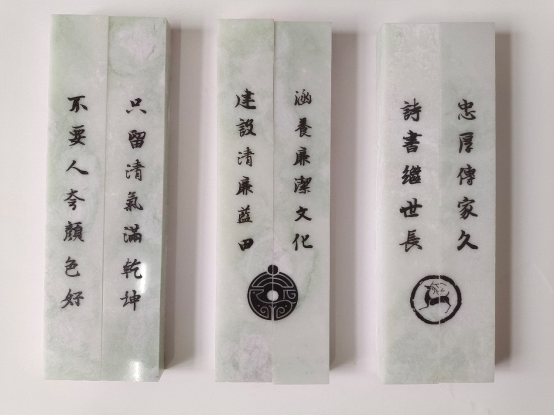 只留清氣滿乾坤
不要人夸顏色好
涵養廉潔文化
建設清廉蓝田
忠厚傳家久
詩書繼世長